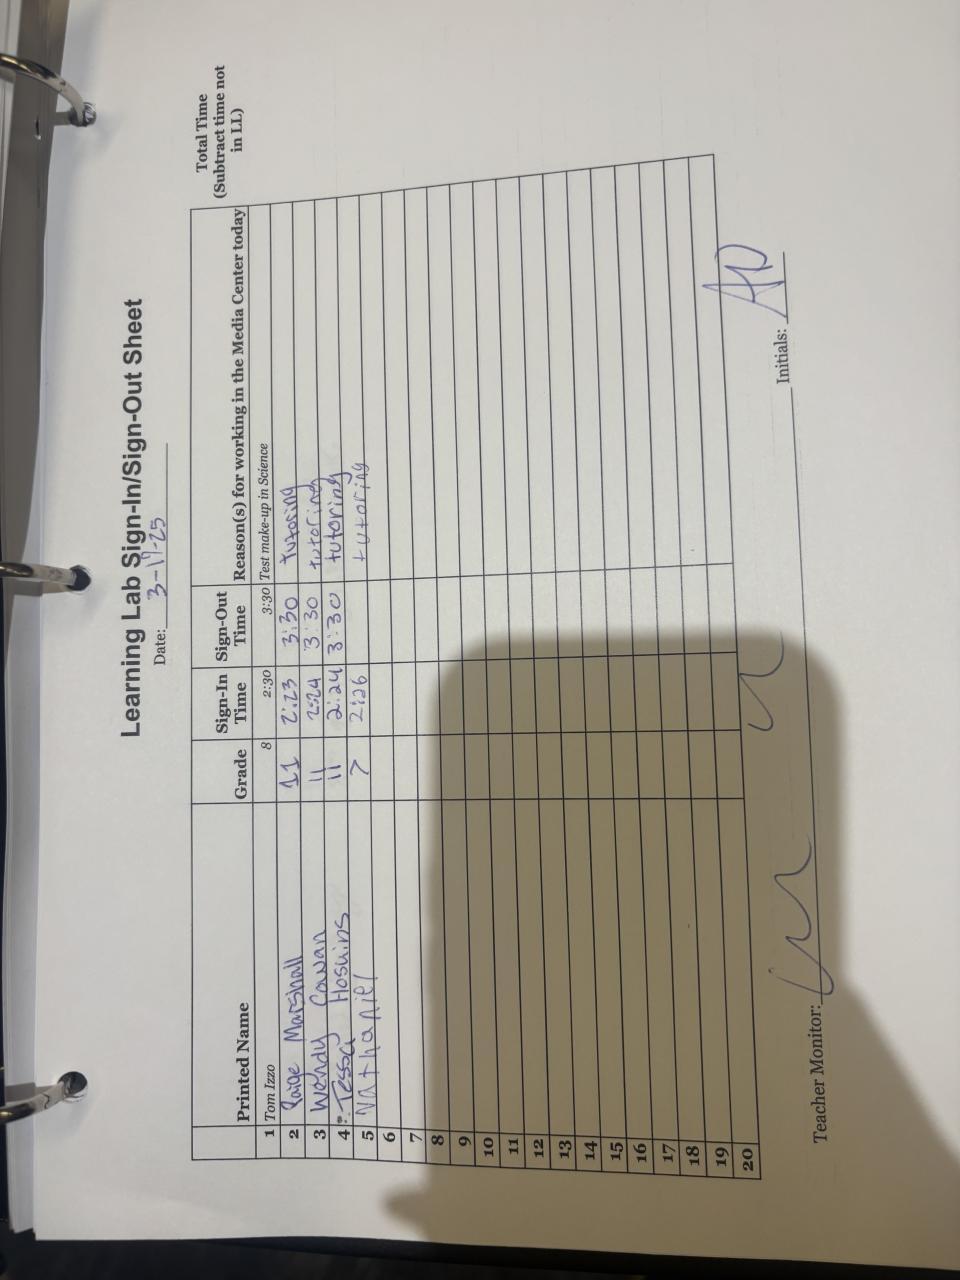 Learning Lab Sign-In/Sign-Out Sheet
Date: 3-17-25
Printed Name Grade Sign-In Time Sign-Out Time Reason(s) for working in the Media Center today Total Time (Subtract time not in LL)
1 Tom Izzo 8 2:30 3:30 Test make-up in Science
2 Paige Marshall 11 2:23 3:30 tutoring
3 Wendy Cowan 11 2:24 3:30 tutoring
4 Tessa Hoskins 11 2:24 3:30 tutoring
5 Nathaniel 7 2:26 tutoring
6
7
8
9
10
11
12
13
14
15
16
17
18
19
20
Teacher Monitor: Initials: